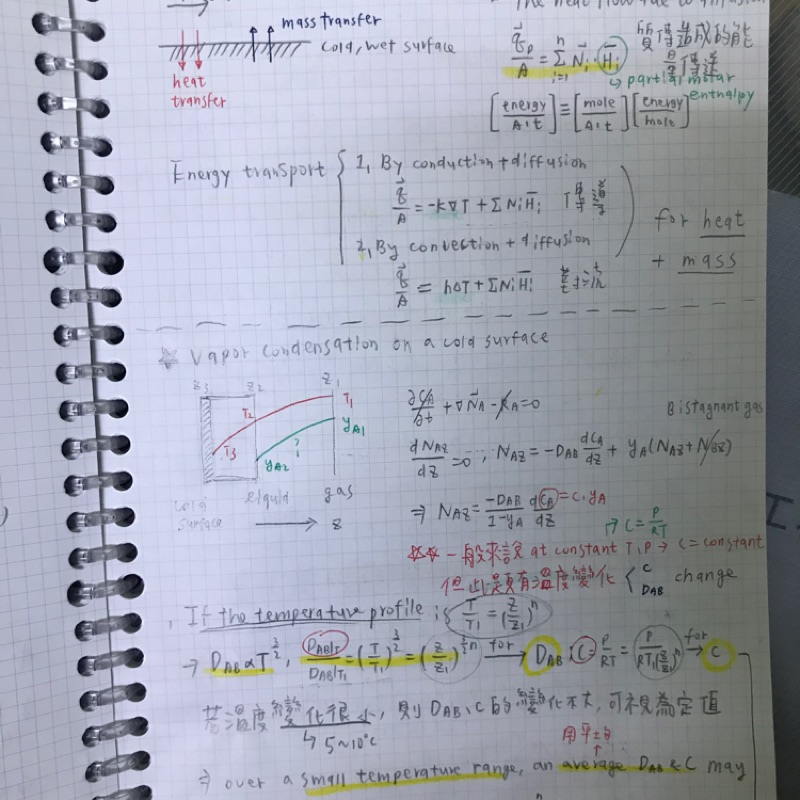 The heat flow due to diffusion
mass transfer
cold, wet surface
heat
transfer
q⃗_D/A = Σ_{i=1}^{n} N⃗i · H̄i
質傳造成的能量傳送
↳ partial molar enthalpy
[energy/A·t] ≡ [mole/A·t][energy/mole]
Energy transport
1, By conduction + diffusion
q⃗/A = -k∇T + ΣNiH̄i
2, By convection + diffusion
q⃗/A = hΔT + ΣNiH̄i
for heat
+ mass
☆ Vapor condensation on a cold surface
z3 z2 z1
T1
T2
T3
yA1
yA2
cold surface
liquid
gas
→ z
∂CA/∂t + ∇N⃗A - RA = 0
B: stagnant gas
dNAZ/dz = 0 ; NAZ = -DAB dCA/dz + yA(NAZ + NBZ)
⇒ NAZ = -DAB/(1-yA) dCA/dz
CA = C·yA
↱ C = P/RT
☆☆ 一般來說 at constant T, P → C = constant
但此題有溫度變化 < C, DAB change
If the temperature profile is T/T1 = (z/z1)^n
→ DAB ∝ T^{3/2}, DAB|T/DAB|T1 = (T/T1)^{3/2} = (z/z1)^{3/2 n} for → DAB ; C = P/RT = P/RT1(z/z1)^n for → C
若溫度變化很小, 則 DAB、C 的變化不大, 可視為定值
↳ 5~10°C
用平均
⇒ over a small temperature range, an average DAB & C may